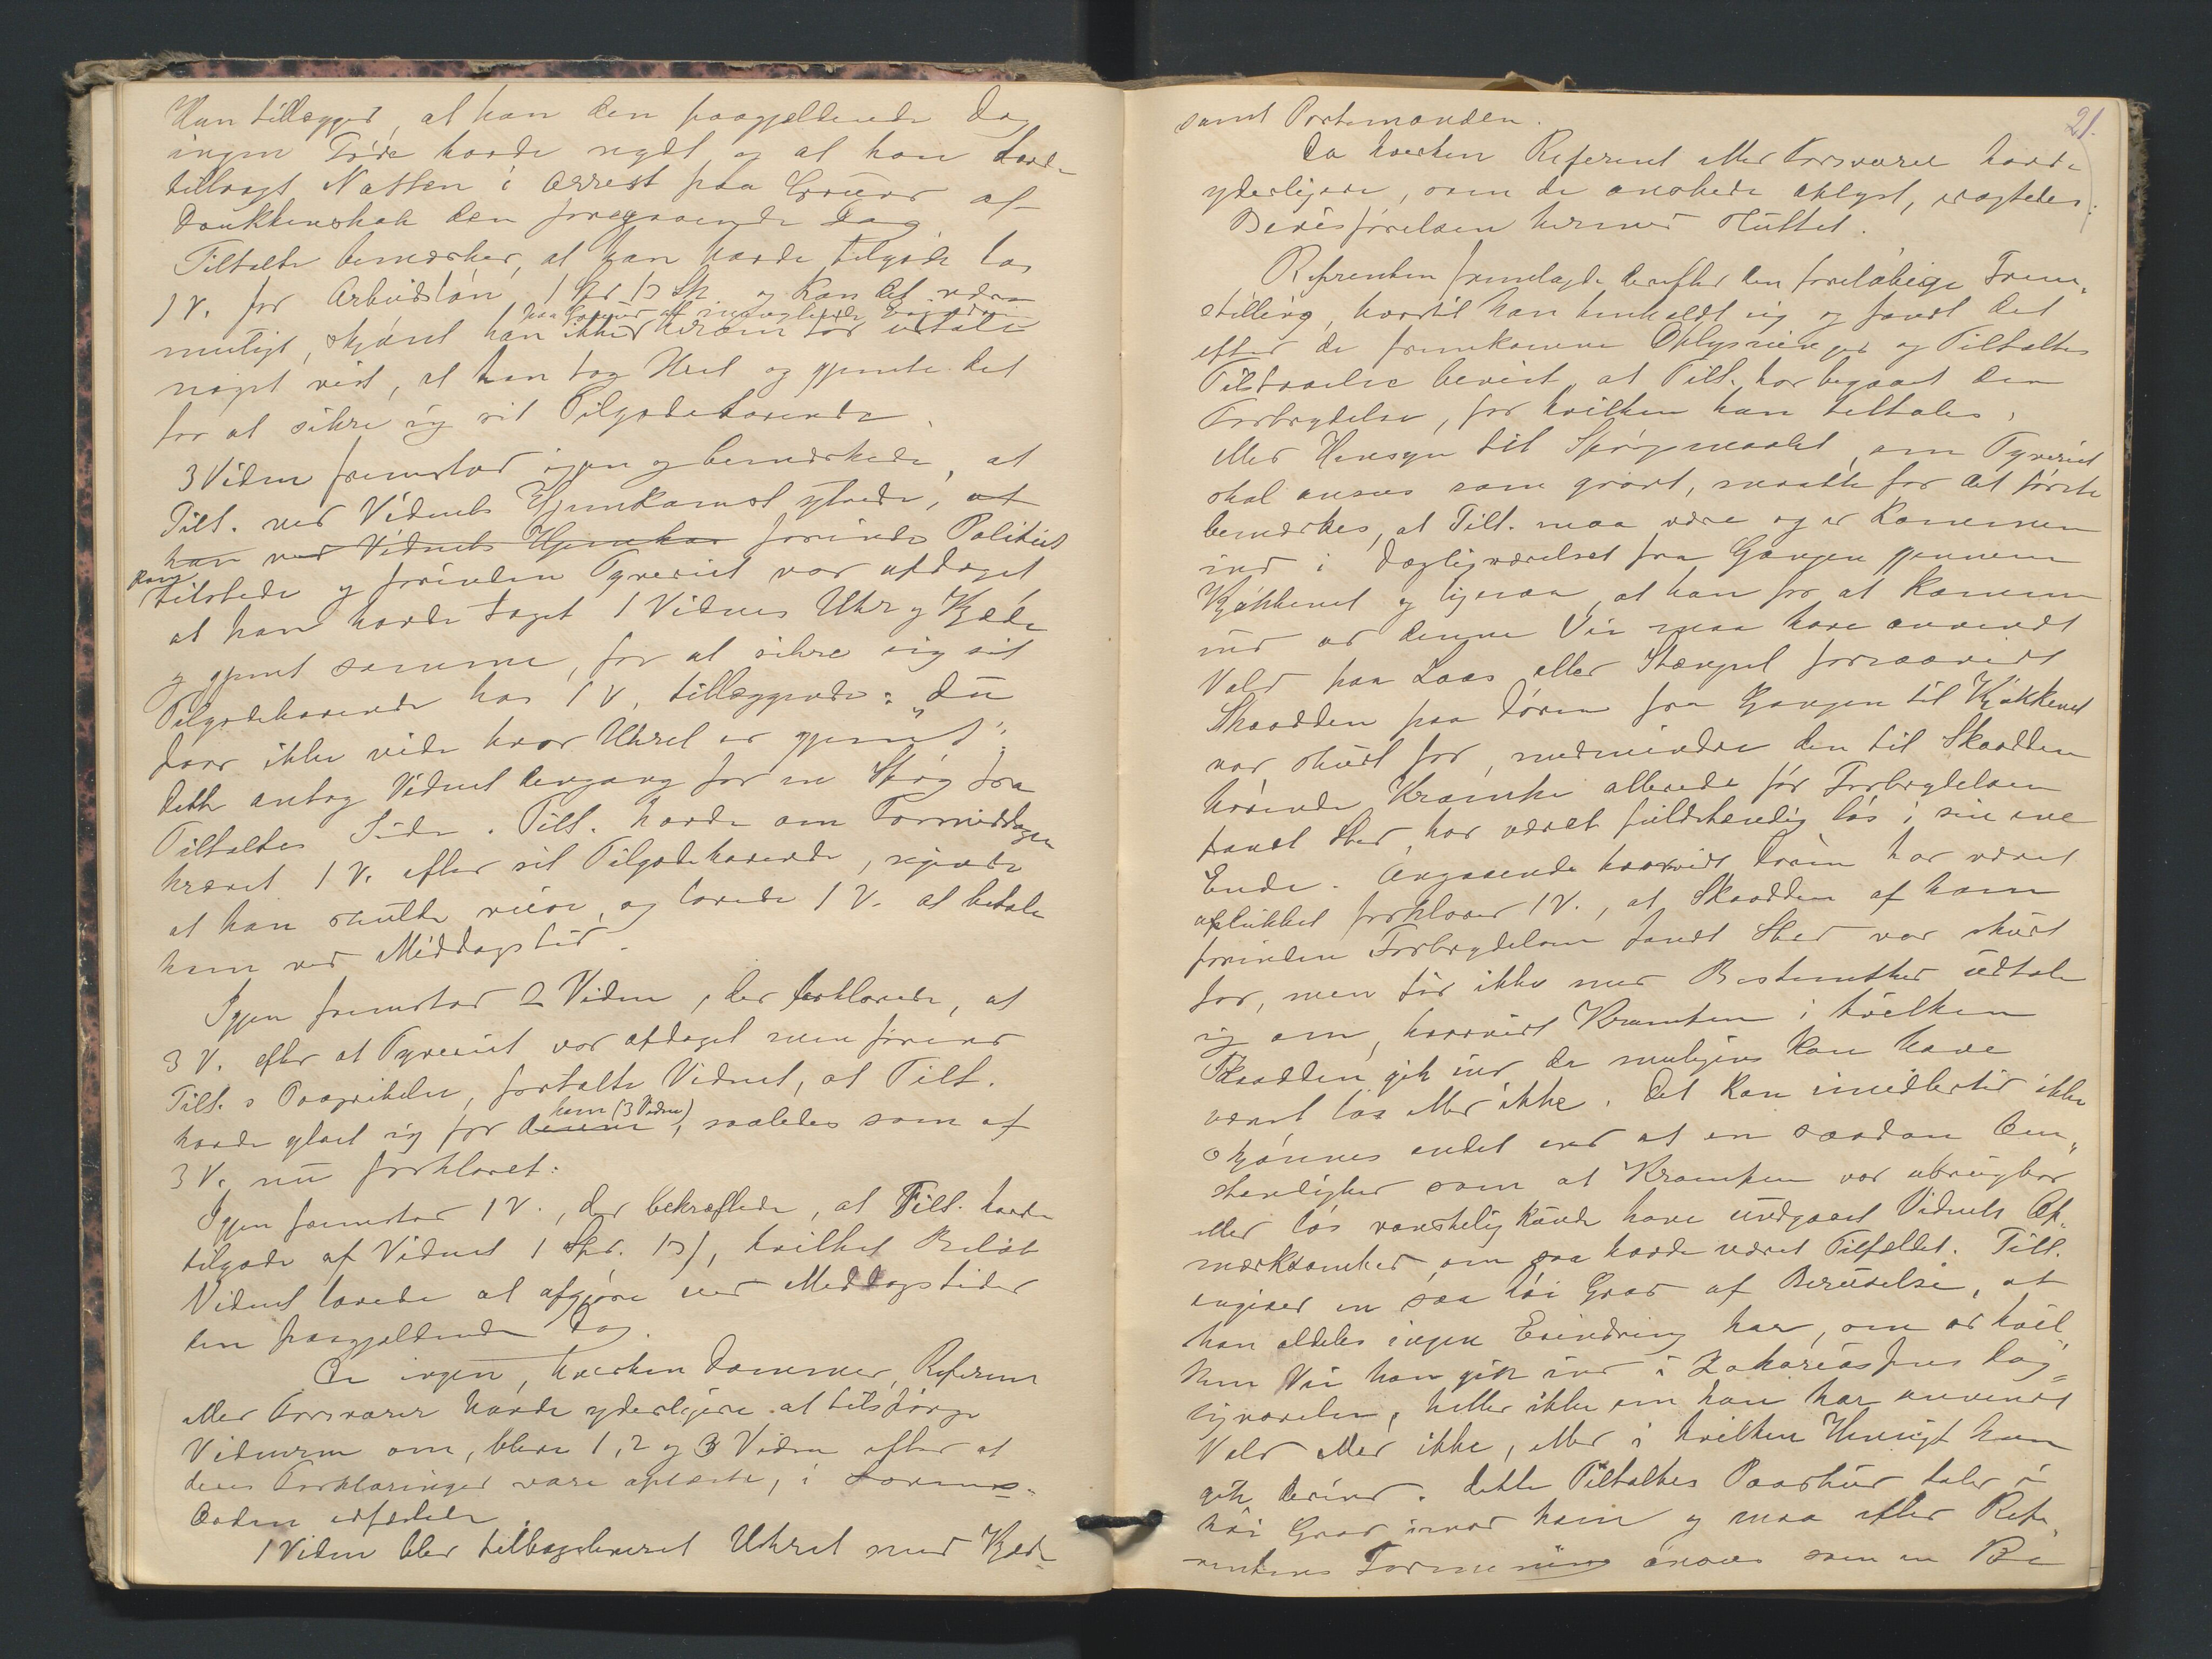 Han tillægger, at han den paagjældende Dag
ingen Føde havde nydt, og at han havde
tilbragt Natten i Arrest paa Grund af
Drukkenskab den foregaaende Dag.
Tiltalte bemærker, at han havde tilgode hos
1 V. for Arbeidsløn 1 Spd 13 Sk og kan det være
paa Grund af manglende Erindring
muligt, skjønt han ikke herom tør udtale
noget vist, at han tog Uret og gjemte det
for at sikre sig sit Tilgodehavende.
3 Vidne fremstod igjen og bemærkede, at
Tilt. ved Vidnets Hjemkomst ytrede, at
han ved Vidnets Hjemkom forinden Politiet
kom
tilstede og forinden Tyveriet var opdaget,
at han havde taget 1 Vidnes Uhr og Kjæde
og gjemt samme, for at sikre sig sit
Tilgodehavende hos 1 V, tillæggende: "Du
faar ikke vide hvor Uhret er gjemt".
Dette antog Vidnet dengang for en Spøg fra
Tiltaltes Side. Tilt. havde om Formiddagen
krævet 1 V. efter sit Tilgodehavende, sigende
at han skulde reise, og lovede 1 V. at betale
ham ved Middagstid.
Igjen fremstod 2 Vidne, der forklarede, at
3 V. efter at Tyveriet var opdaget men førend
Tilt.s Paagribelse, fortalte Vidnet, at Tilt.
ham (3 Vidne)
havde ytret sig for denne, saaledes som af
3 V. nu forklaret.
Igjen fremstod 1 V., der bekræftede, at Tilt. havde
tilgode af Vidnet 1 Spd. 13 s, hvilket Beløb
Vidnet lovede at afgjøre ved Middagstider
den paagjældende Dag.
Da ingen, hverken Dommer, Referent
eller Forsvarer havde yderligere at tilspørge
Vidnerne om, bleve 1, 2 og 3 Vidne efter at
deres Forklaringer vare oplæste, i Lovens
Orden
1 Vidne blev tilbageleveret Uhret med Kjæde
21.
samt Portemonæen.
Da hverken Referent eller Forsvarer havde
yderligere, som de ønskede oplyst, ragtedes
Bevisførelsen hermed sluttet.
Referenten fremlagde derefter den foreløbige Frem-
stilling, hvortil han henholdt sig og fandt det
efter de fremkomne Oplysninger og Tiltaltes
Tilstaaelse bevist, at Tilt. har begaaet den
Forbrydelse, for hvilken han tiltales.
Med Hensyn til Spørgsmaalet, om Tyveriet
skal ansees som grovt, maatte for det første
bemærkes, at Tilt. maa være og er kommen
ind i Dagligværelset fra Gangen gjennem
Kjøkkenet og ligesaa, at han for at komme
ind ad denne Vei maa have anvendt
Vold paa Laas eller Stængsel forsaavidt
Skaadden paa Døren fra Gangen til Kjøkkenet
var skudt for, medmindre den til Skaadden
hørende Krampe allerede før Forbrydelsen
fandt Sted, har været fuldstændig løs i sin ene
Ende. Angaaende hvorvidt Døren har været
aflukket forklarer 1 V., at Skaadden af ham
forinden Forbrydelsen fandt Sted var skudt
for, men tør ikke med Bestemthed udtale
sig om, hvorvidt Krampen i hvilken
Skaadden gik ind da muligens kan have
været løs eller ikke. Det kan imidlertid ikke
skjønnes andet end at en saadan Om-
stændighed som at Krampen var ubrugbar
eller løs vanskelig kunde have undgaaet Vidnets Op-
mærksomhed om saa havde været Tilfældet. Tilt.
angiver en saa høi Grad af Beruselse, at
han aldeles ingen Erindring har, om ad hvil-
ken Vei han gik ind i Zakariasens Dag-
ligværelse, heller ikke om han har anvendt
Vold eller ikke, eller i hvilken Hensigt han
gik derind. Dette Tiltaltes Paaskud taler i
høi Grad imod ham og maa efter Refe-
rentens Formening ansees som en Be